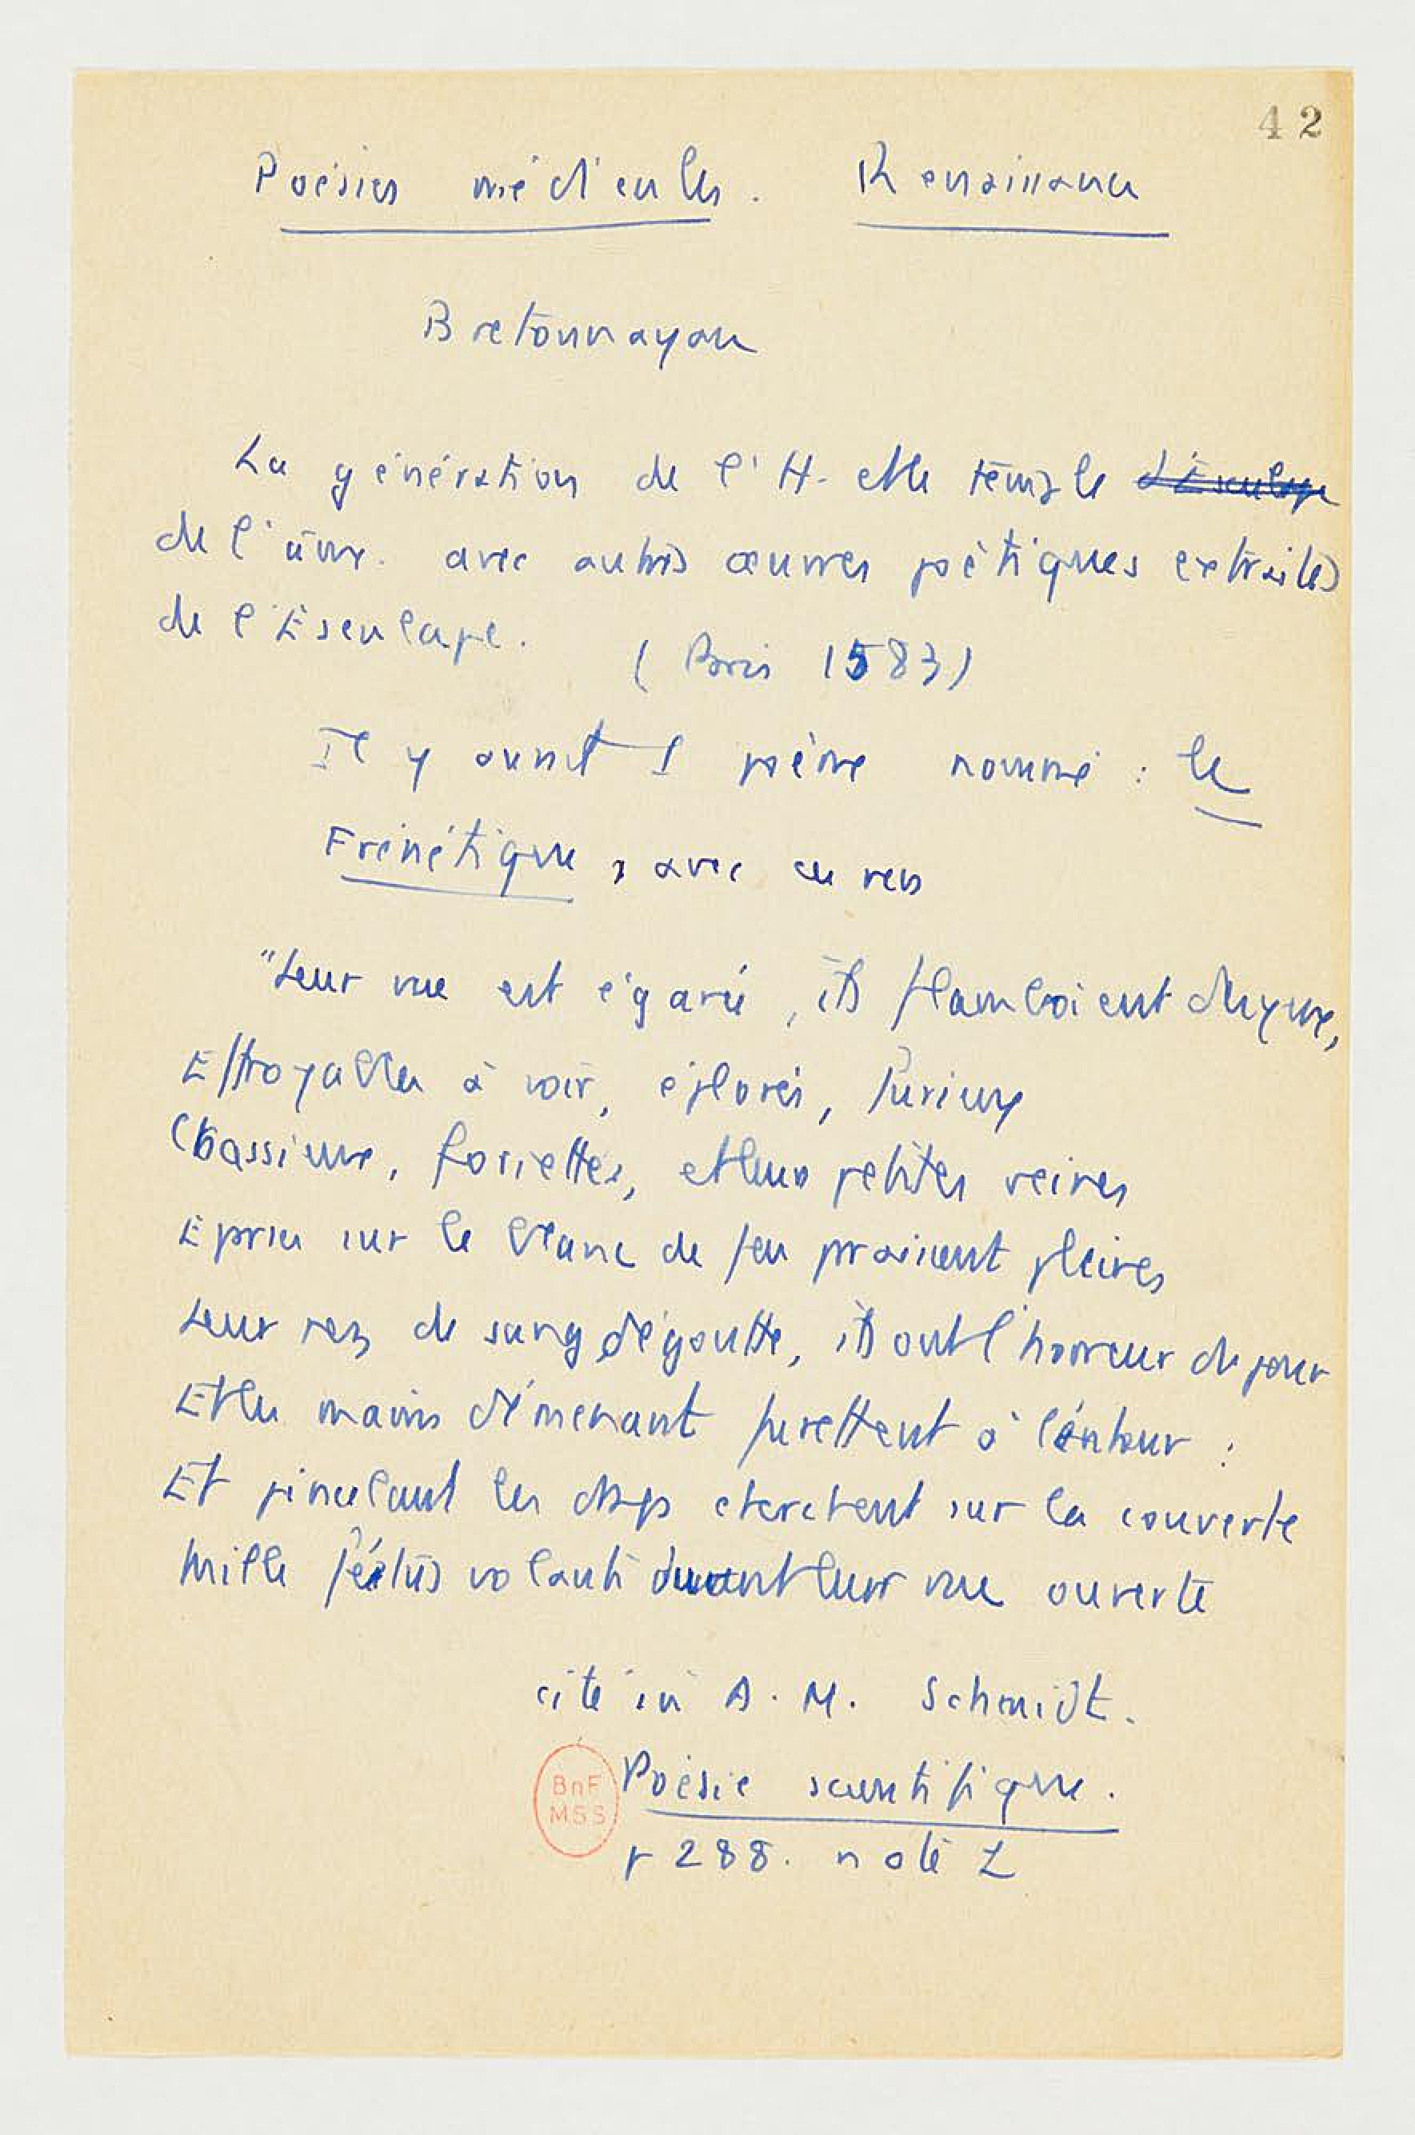 42
Poésies médicales. Renaissance
Bretonnayau
La génération de l'H. et le temple d'Esculape
de l'âme. avec autres œuvres poétiques extraites
de l'Esculape.
(Paris 1583)
Il y aurait 1 poème nommé : le
Frénétique, avec ces vers
"Leur vue est égarée, ils flamboient des yeux,
Effroyables à voir, éplorés, furieux
Chassieux, fossettes, et leurs petites veines
Eprises sur le blanc de feu paraissent pleines
Leur nez de sang dégoutte, ils ont l'horreur du jour
Et les mains démenant furettent à l'entour :
Et pincelant les draps cherchent sur la couverte
Mille fétus volants devant leur vue ouverte
cité in A. M. Schmidt.
Poésie scientifique.
BnF
MSS
p 288. note 2